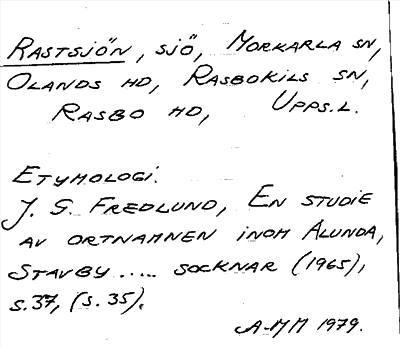 RASTSJÖN, SJÖ, MORKARLA SN,
OLANDS HD, RASBOKILS SN,
RASBO HD, UPPS.L.
ETYMOLOGI.
J. G. FREDLUND, EN STUDIE
AV ORTNAMNEN INOM ALUNDA,
STAVBY ..... SOCKNAR (1965),
S.37, (S. 35).
A-MM 1979.